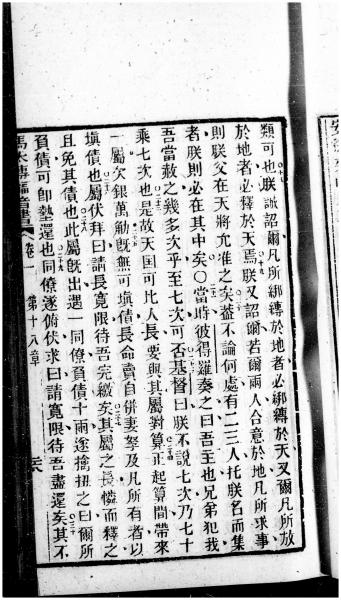 類可也朕誠詔爾凡所綁縛於地者必綁縛於天又爾凡所放
於地者必釋於天焉朕又詔爾若爾兩人合意於地凡所求事
則朕父在天將允准之矣蓋不論何處有二三人托朕名而集
者朕則必在其中矣〇當時彼得羅奏之曰吾主也兄弟犯我
吾當赦之幾多次乎至七次可否基督曰朕不說七次乃七十
乘七次也是故天國可比人長要與其屬對算正起算間帶來
一屬欠銀萬觔旣無可塡債長命賣自併妻孥及凡所有者以
塡債也屬伏拜曰請長寬限待吾完繳矣其屬之長憐而釋之
且免其債也此屬旣出遇一同僚負債十兩遂擒扭之曰爾所
負債可即墊還也同僚遂俯伏求曰請寬限待吾盡還矣其不
馬太傳福音書 卷一 第十八章
安